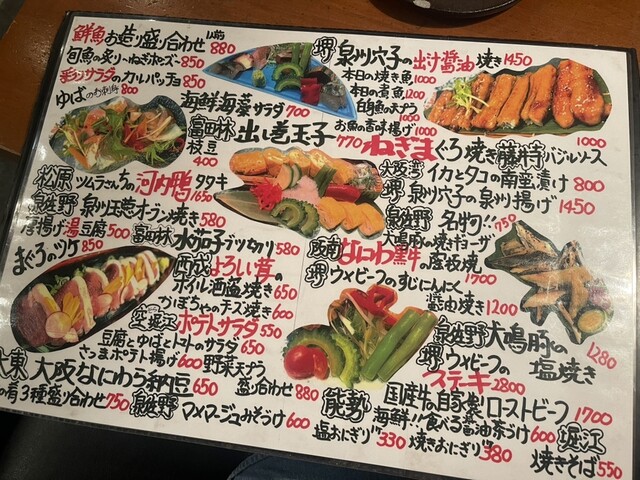 鮮魚お造り盛り合わせ 1人前 880
旬魚の炙り〜ねぎポンズ〜 850
彩りサラダのカルパッチョ 850
ゆばのお刺身 800
海鮮海藻サラダ 700
富田林 枝豆 400
出し巻玉子 770
堺 泉州穴子の出汁醤油焼き 1450
本日の焼き魚 1000
本日の煮魚 1200
白身魚の天ぷら 1000
お魚の香味揚げ 1000
ねぎまぐろ焼き 藤井寺バジルソース 1000
松原 ツムラさんちの河内鴨タタキ 1650
泉佐野 泉州玉葱オーブン焼き 580
唐揚げ湯豆腐 500
富田林 水茄子ブツ切り 580
まぐろのヅケ 850
大阪湾 イカとタコの南蛮漬け 800
堺 泉州穴子の泉州揚げ 1450
泉佐野 名物!! 犬鳴豚の焼ギョーザ 750
阪南 なにわ黒牛の陶板焼 1700
堺 ウメビーフのすじにんにく醤油焼き 1200
西成 よろしい茸のホイル酒塩焼き 650
かぼちゃのチーズ焼き 600
空堀江 ポテトサラダ 550
豆腐とゆばとトマトのサラダ 650
さつまポテト揚げ 600
野菜天ぷら盛り合わせ 880
大東 大阪なにわら納豆 650
の肴3種盛り合わせ 750
泉佐野 マメマージュみそうけ 600
泉佐野 犬鳴豚の塩焼き 1280
堺 ウメビーフのステーキ 2800
国産牛の自家製ローストビーフ 1700
能勢 海鮮!!食べる醤油茶うけ 600
塩おにぎり 330
焼きおにぎり 380
堀江 焼きそば 550